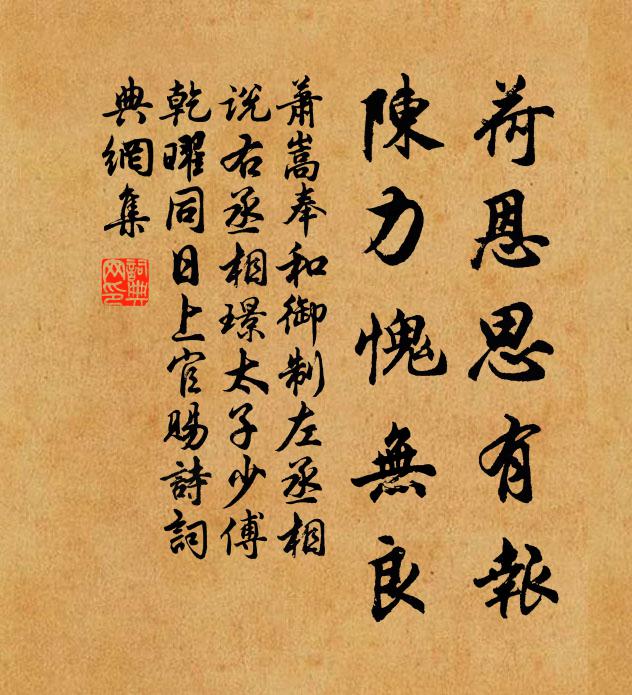 荷恩思有報
陳力愧無良
蕭嵩奉和御制左丞相
說右丞相璟太子少傅
乾曜同日上官賜詩詞
典網集
詞典
网印